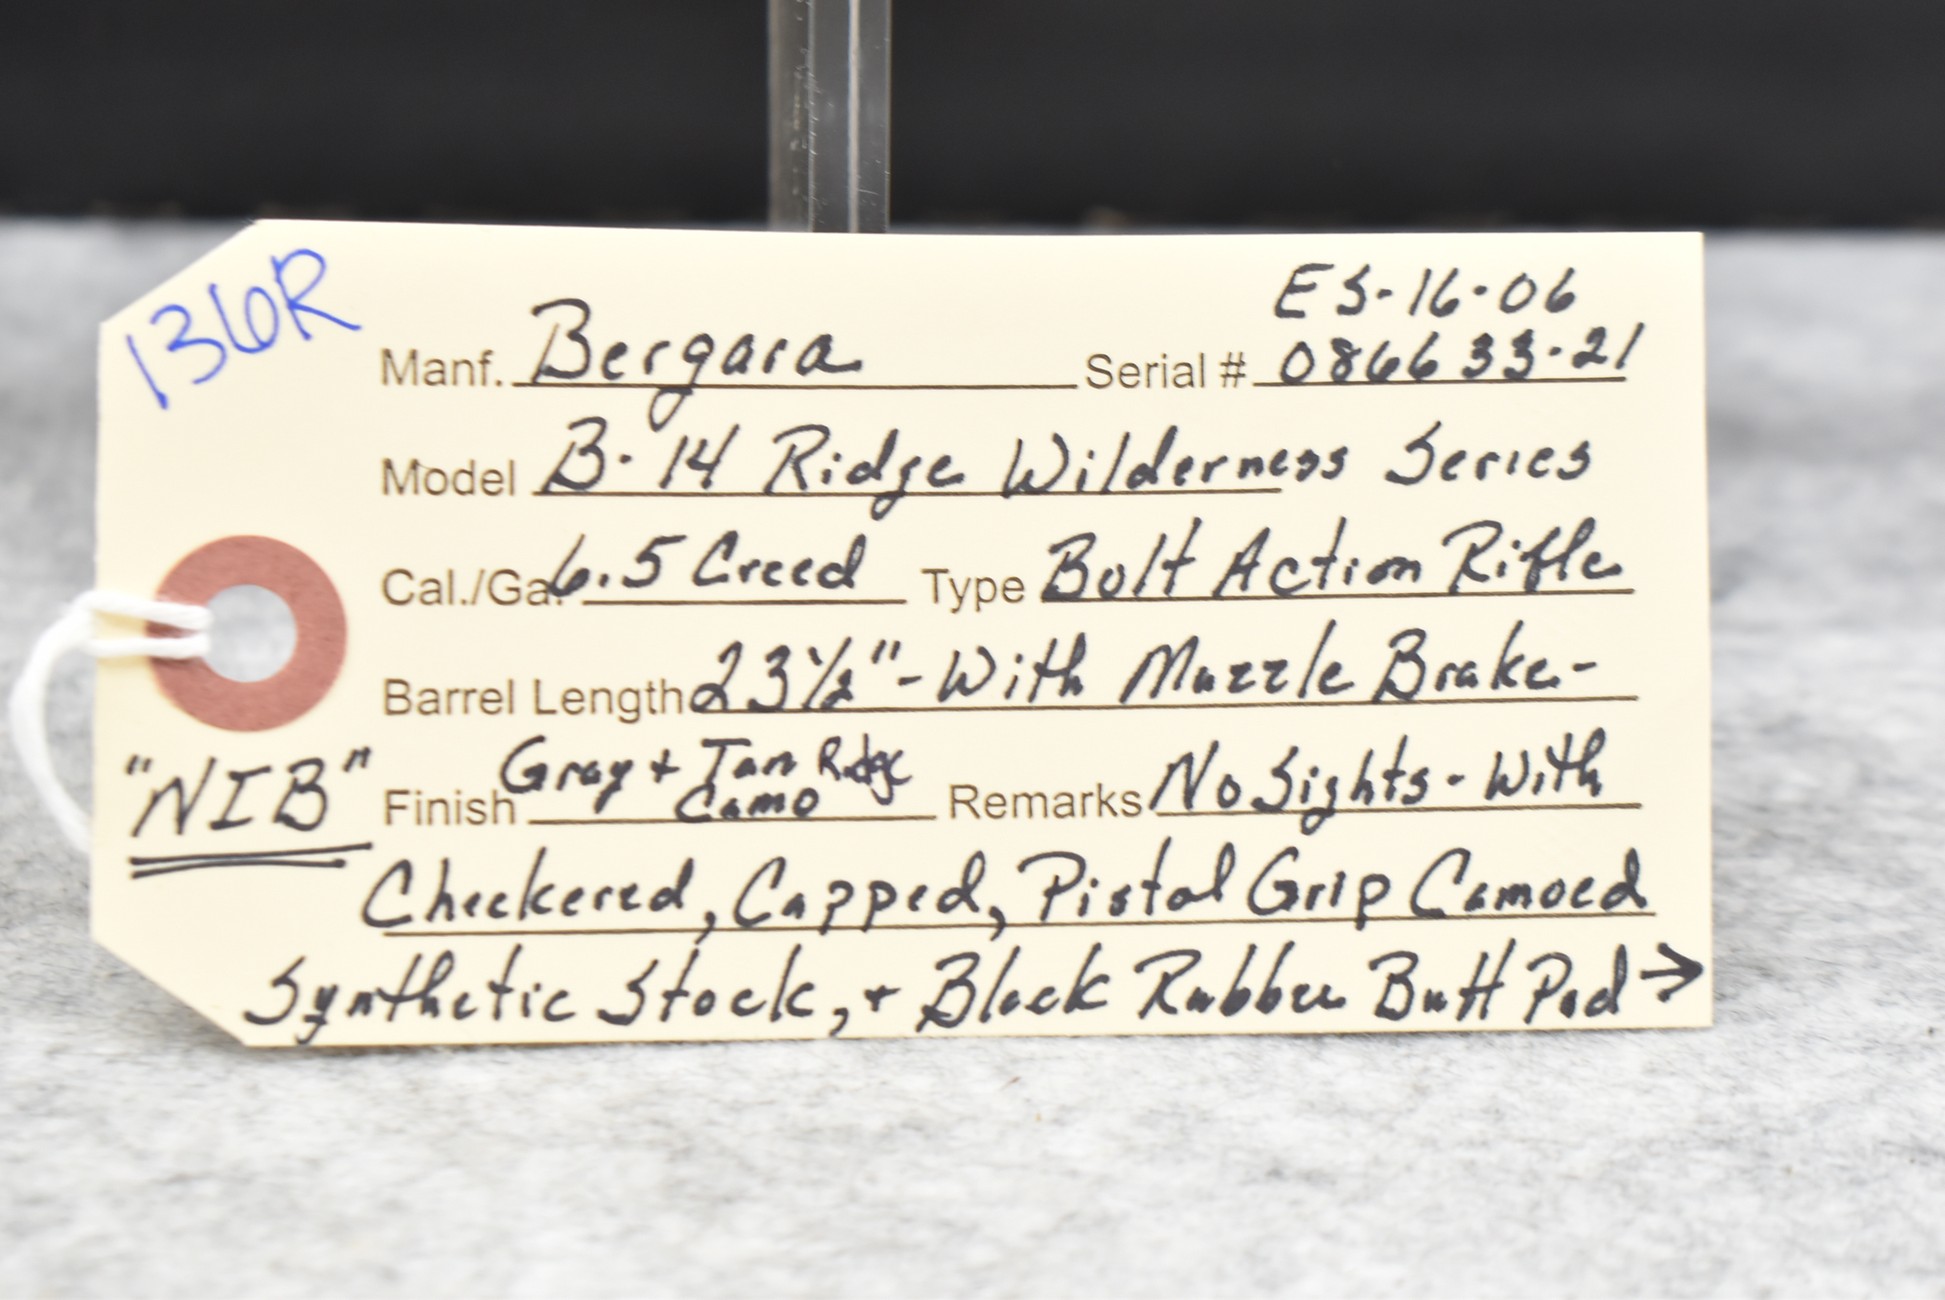 136R
ES-16-06
Manf. Bergara Serial # 086633-21
Model B-14 Ridge Wilderness Series
Cal./Ga. 6.5 Creed Type Bolt Action Rifle
Barrel Length 23 1/2" - With Muzzle Brake -
"NIB" Finish Gray + Tan Ridge Camo Remarks No Sights - With
Checkered, Capped, Pistol Grip Camoed
Synthetic Stock, + Black Rubber Butt Pad →